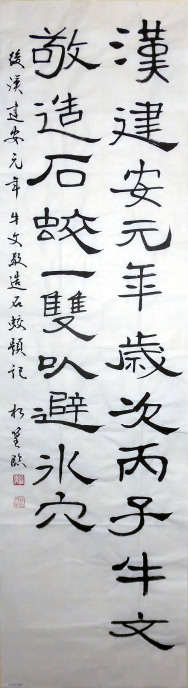 漢建安元年歲次丙子牛文
敬造石蛟一雙以避水穴
後漢建安元年牛文敬造石蛟題記